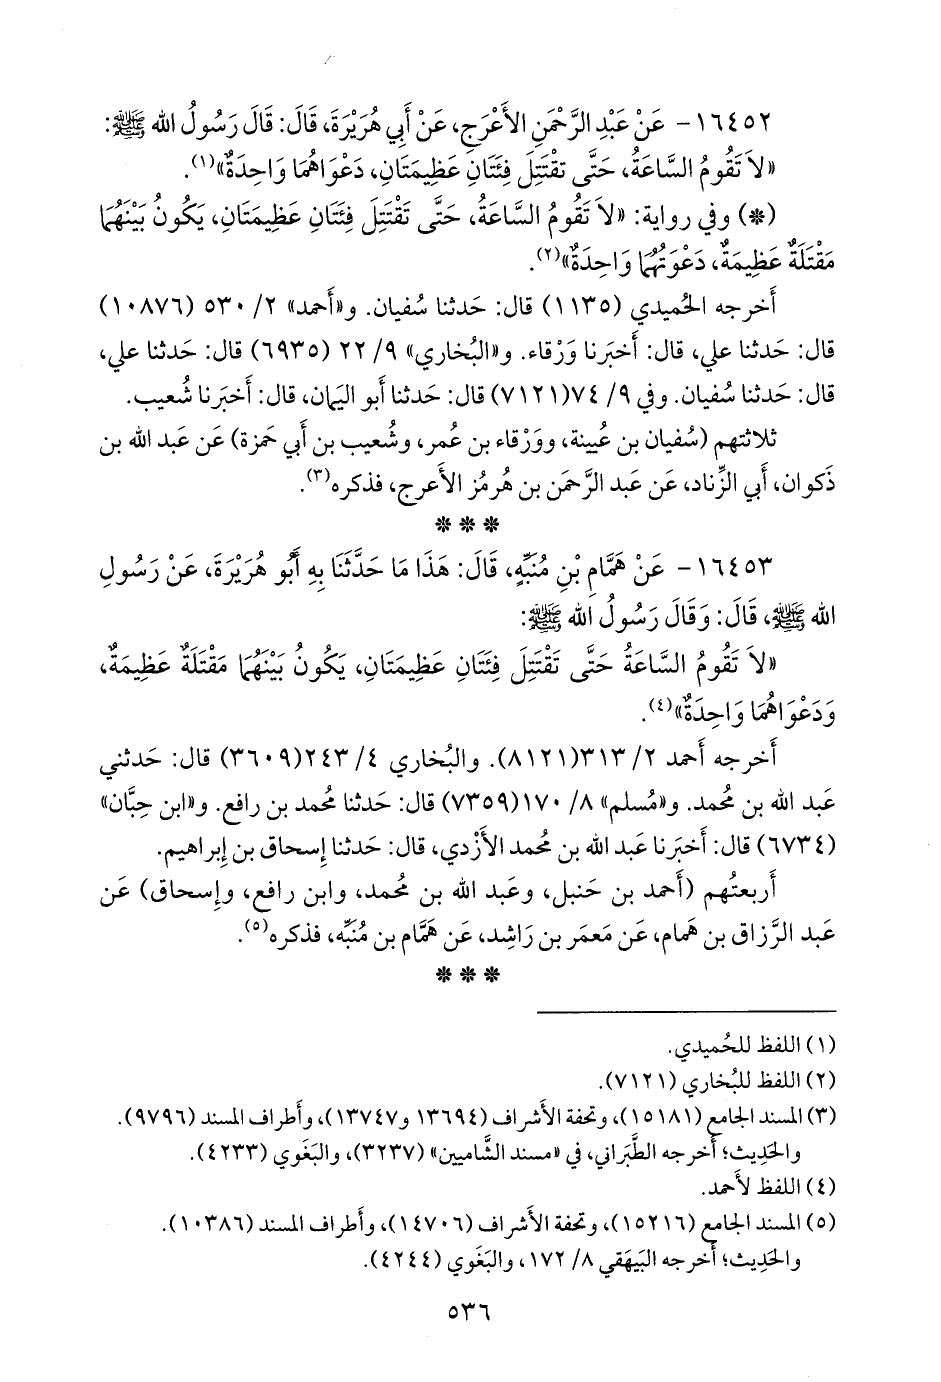 ١٦٤٥٢- عَنْ عَبْدِ الرَّحْمَنِ الأَعْرَجِ، عَنْ أَبِي هُرَيْرَةَ، قَالَ: قَالَ رَسُولُ الله ﷺ:
«لاَ تَقُومُ السَّاعَةُ، حَتَّى تَقْتَتِلَ فِئَتَانِ عَظِيمَتَانِ، دَعْوَاهُمَا وَاحِدَةٌ»(١).
(*) وفي رواية: «لاَ تَقُومُ السَّاعَةُ، حَتَّى تَقْتَتِلَ فِئَتَانِ عَظِيمَتَانِ، يَكُونُ بَيْنَهُمَا
مَقْتَلَةٌ عَظِيمَةٌ، دَعْوَتُهُمَا وَاحِدَةٌ»(٢).
أَخرجه الحُميدي (١١٣٥) قال: حَدثنا سُفيان. و«أَحمد» ٢/ ٥٣٠ (١٠٨٧٦)
قال: حَدثنا علي، قال: أَخبَرنا وَرْقاء. و«البُخاري» ٩/ ٢٢ (٦٩٣٥) قال: حَدثنا علي،
قال: حَدثنا سُفيان. وفي ٩/ ٧٤(٧١٢١) قال: حَدثنا أَبو اليَمان، قال: أَخبَرنا شُعيب.
ثلاثتهم (سُفيان بن عُيينة، ووَرْقاء بن عُمر، وشُعيب بن أَبي حَمزة) عَن عَبد الله بن
ذَكوان، أَبي الزِّناد، عَن عَبد الرَّحمَن بن هُرمُز الأَعرج، فذكره(٣).
* * *
١٦٤٥٣- عَنْ هَمَّامِ بْنِ مُنَبِّهٍ، قَالَ: هَذَا مَا حَدَّثَنَا بِهِ أَبُو هُرَيْرَةَ، عَنْ رَسُولِ
الله ﷺ، قَالَ: وَقَالَ رَسُولُ الله ﷺ:
«لاَ تَقُومُ السَّاعَةُ حَتَّى تَقْتَتِلَ فِئَتَانِ عَظِيمَتَانِ، يَكُونُ بَيْنَهُمَا مَقْتَلَةٌ عَظِيمَةٌ،
وَدَعْوَاهُمَا وَاحِدَةٌ»(٤).
أَخرجه أَحمد ٢/ ٣١٣(٨١٢١). والبُخاري ٤/ ٢٤٣(٣٦٠٩) قال: حَدثني
عَبد الله بن مُحمد. و«مُسلم» ٨/ ١٧٠(٧٣٥٩) قال: حَدثنا مُحمد بن رافع. و«ابن حِبَّان»
(٦٧٣٤) قال: أَخبَرنا عَبد الله بن مُحمد الأَزْدي، قال: حَدثنا إِسحاق بن إِبراهيم.
أَربعتُهم (أَحمد بن حَنبل، وعَبد الله بن مُحمد، وابن رافع، وإِسحاق) عَن
عَبد الرَّزاق بن هَمام، عَن مَعمَر بن رَاشِد، عَن هَمَّام بن مُنَبِّه، فذكره(٥).
* * *
(١) اللفظ للحُميدي.
(٢) اللفظ للبُخاري (٧١٢١).
(٣) المسند الجامع (١٥١٨١)، وتحفة الأَشراف (١٣٦٩٤ و١٣٧٤٧)، وأَطراف المسند (٩٧٩٦).
والحَدِيث؛ أَخرجه الطَّبَراني، في «مسند الشَّاميين» (٣٢٣٧)، والبَغَوي (٤٢٣٣).
(٤) اللفظ لأَحمد.
(٥) المسند الجامع (١٥٢١٦)، وتحفة الأَشراف (١٤٧٠٦)، وأَطراف المسند (١٠٣٨٦).
والحَدِيث؛ أَخرجه البَيهَقي ٨/ ١٧٢، والبَغَوي (٤٢٤٤).
٥٣٦